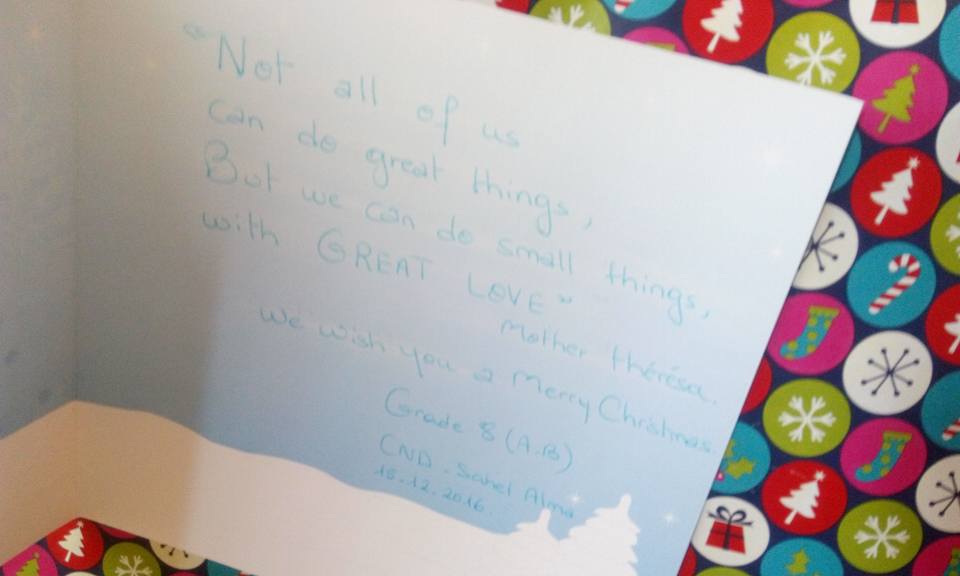 "Not all of us
can do great things,
But we can do small things,
with GREAT LOVE"
Mother thérésa.
We wish you a Merry Christmas.
Grade 8 (A.B)
CND - Sahel Alma
15.12.2016.